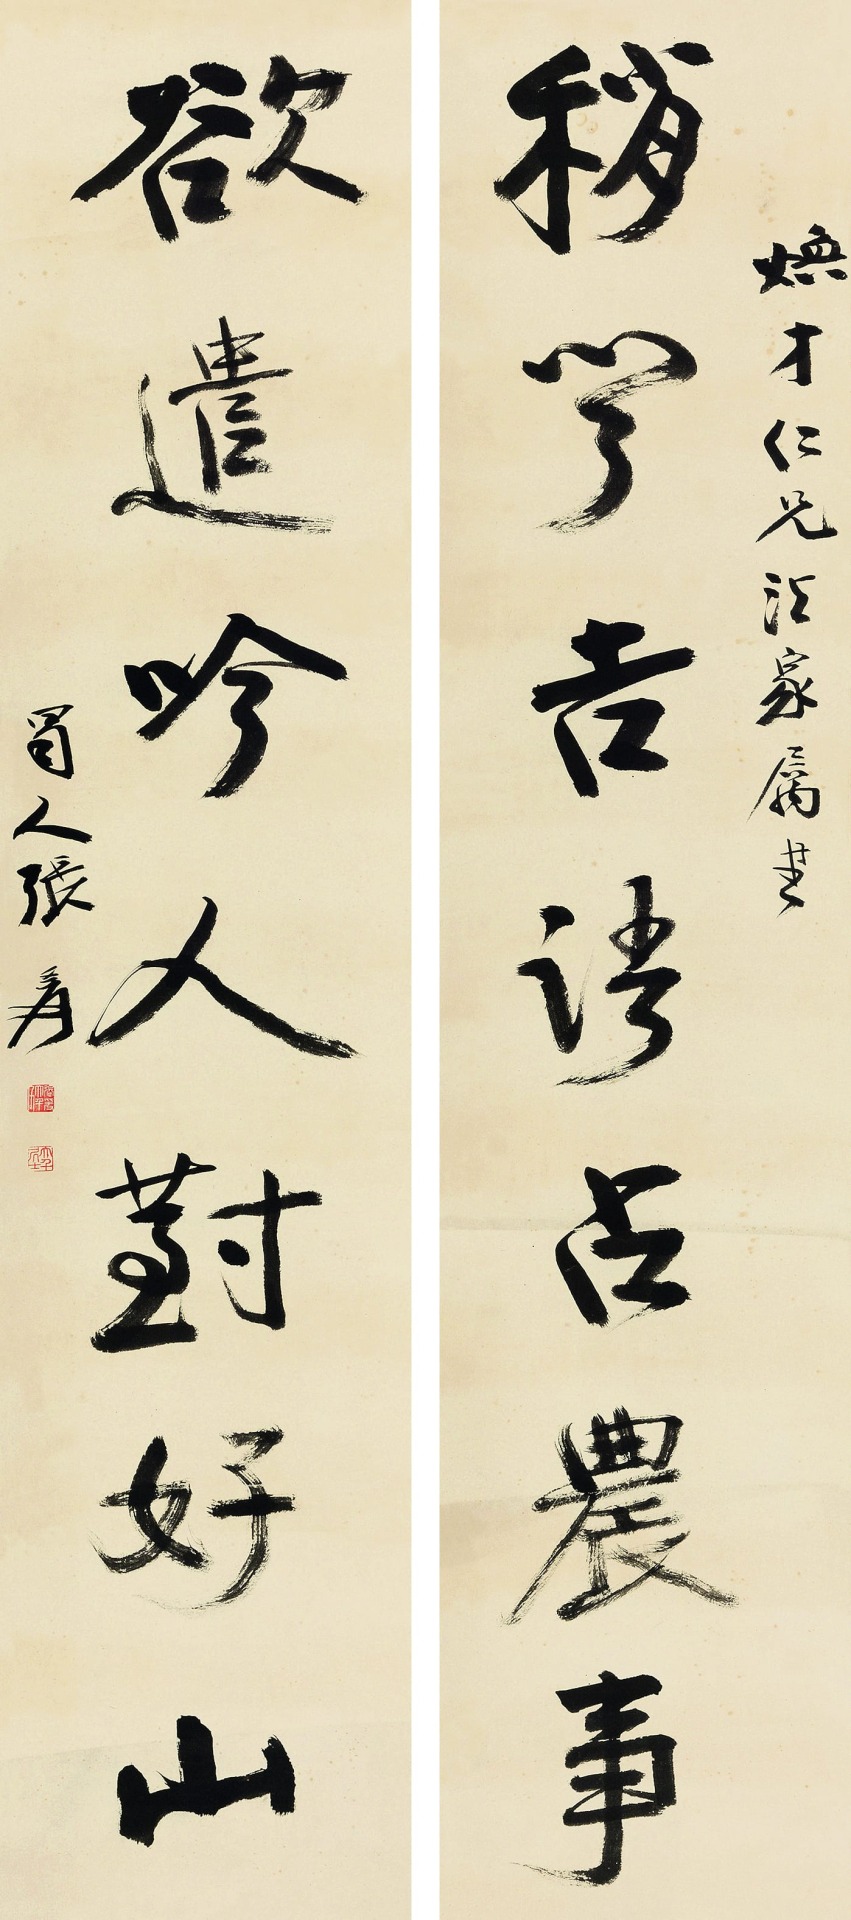 煥才仁兄法家屬書
稍聞吉語占農事
欲遣吟人對好山
蜀人張爰